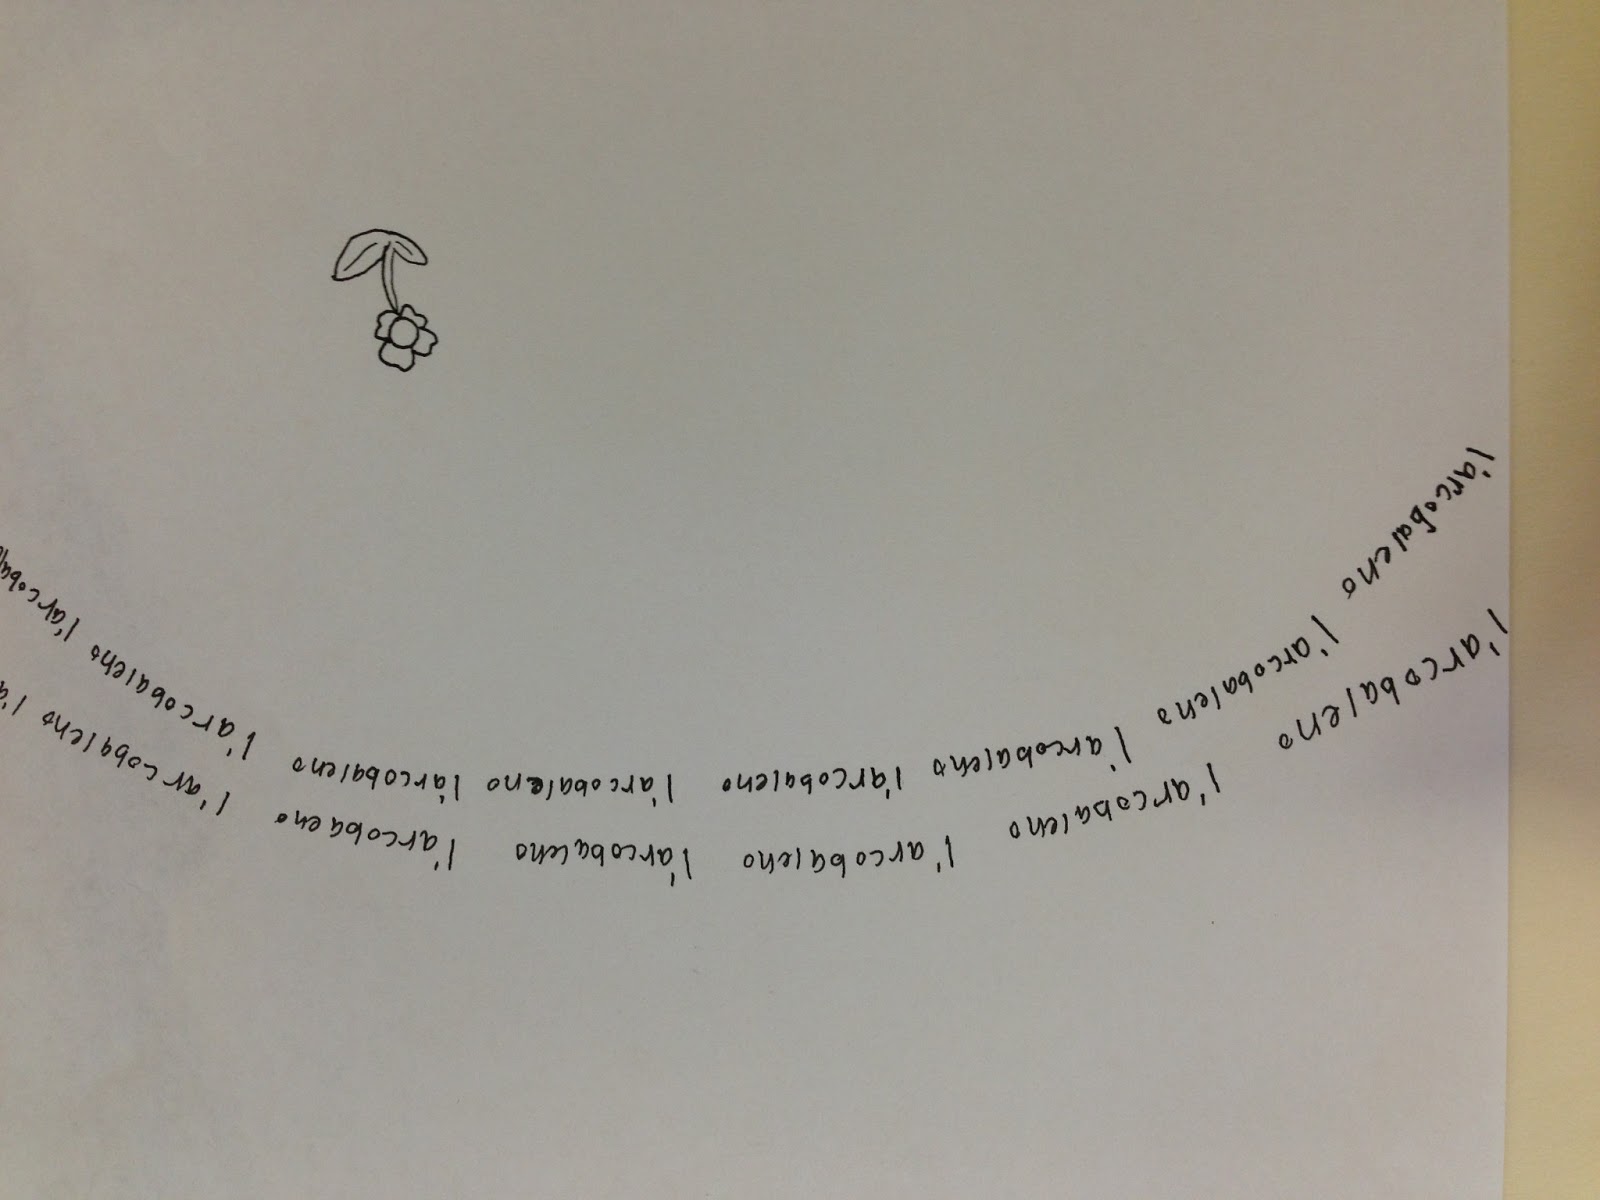 l'arcobaleno l'arcobaleno l'arcobaleno l'arcobaleno l'arcobaeno l'arcobaleno l'a
l'arcobaleno l'arcobaleno l'arcobaleno l'arcobaleno l'arcobaleno l'arcobaleno l'arcobaleno l'arcoba